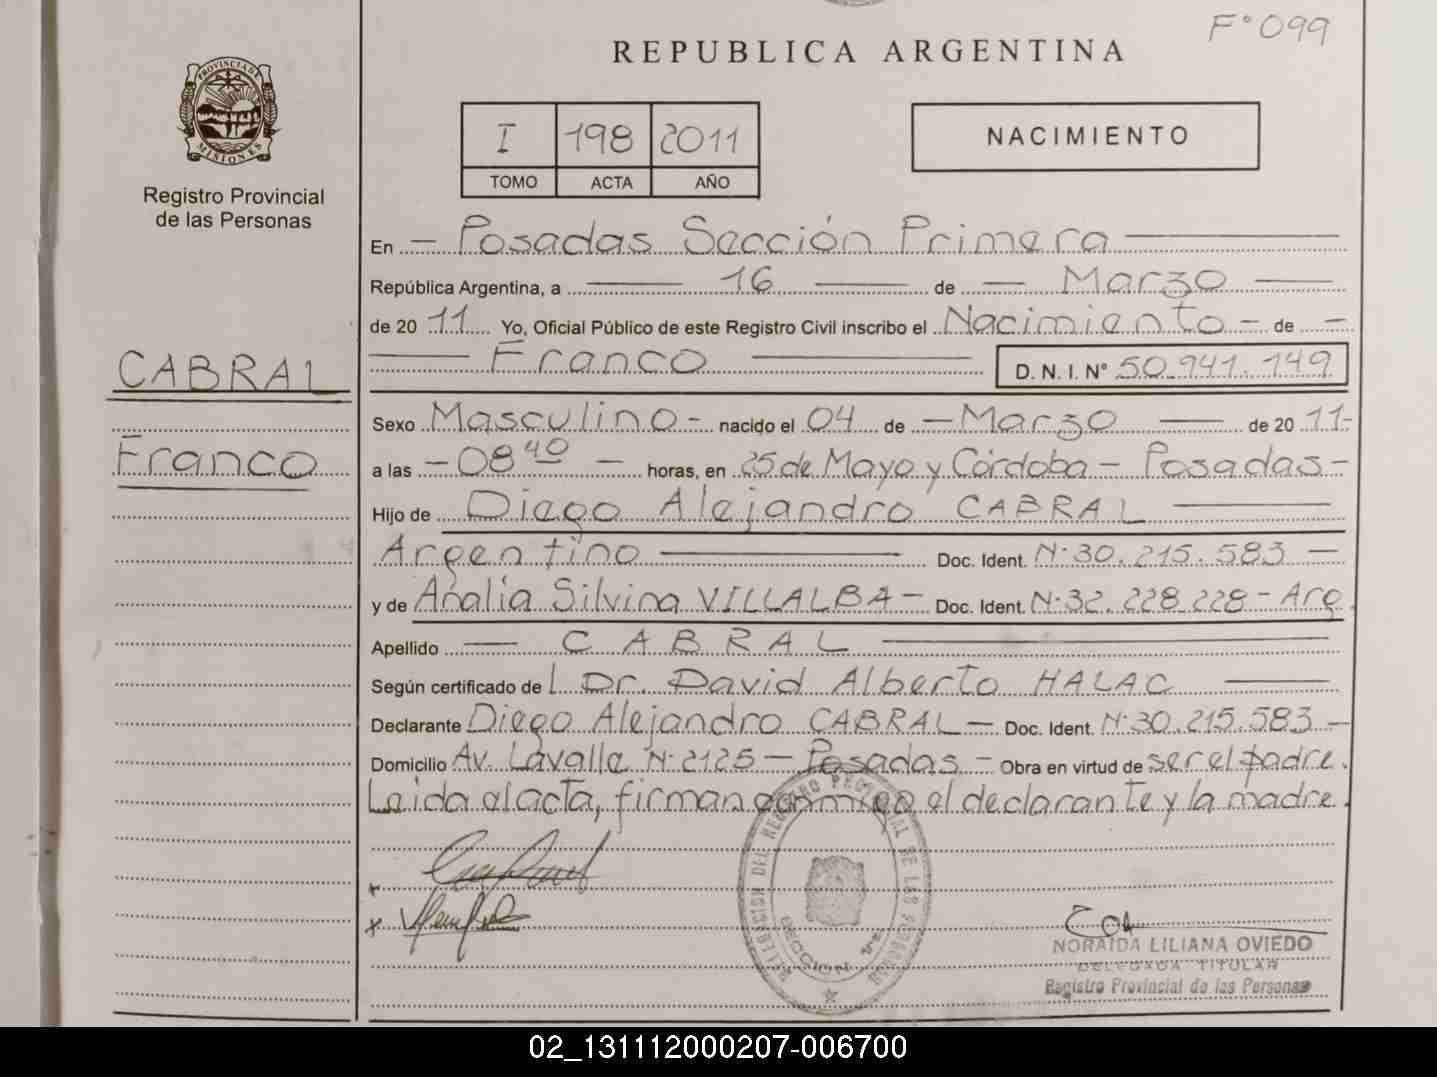 F° 099
REPUBLICA ARGENTINA
PROVINCIA DE
MISIONES
Registro Provincial
de las Personas
I 198 2011
TOMO ACTA AÑO
NACIMIENTO
En - Posadas Sección Primera
República Argentina, a 16 de - Marzo
de 20 11 Yo, Oficial Público de este Registro Civil inscribo el Nacimiento - de -
Franco D. N. I. N° 50.941.149
CABRAL
Franco
Sexo Masculino - nacido el 04 de - Marzo - de 20 11-
a las - 08 40 - horas, en 25 de Mayo y Córdoba - Posadas -
Hijo de Diego Alejandro CABRAL
Argentino Doc. Ident. N° 30.215.583 -
y de Analía Silvina VILLALBA - Doc. Ident. N° 32.228.228 - Arg.
Apellido - CABRAL
Según certificado de l Dr. David Alberto HALAC
Declarante Diego Alejandro CABRAL - Doc. Ident. N° 30.215.583 -
Domicilio Av. Lavalle N° 2125 - Posadas - Obra en virtud de ser el padre.
Leída el acta, firman conmigo el declarante y la madre.
DELEGACION DEL REGISTRO PROVINCIAL DE LAS PERSONAS
SECCION 1ra
NORAIDA LILIANA OVIEDO
DELEGADA TITULAR
Registro Provincial de las Personas
02_131112000207-006700